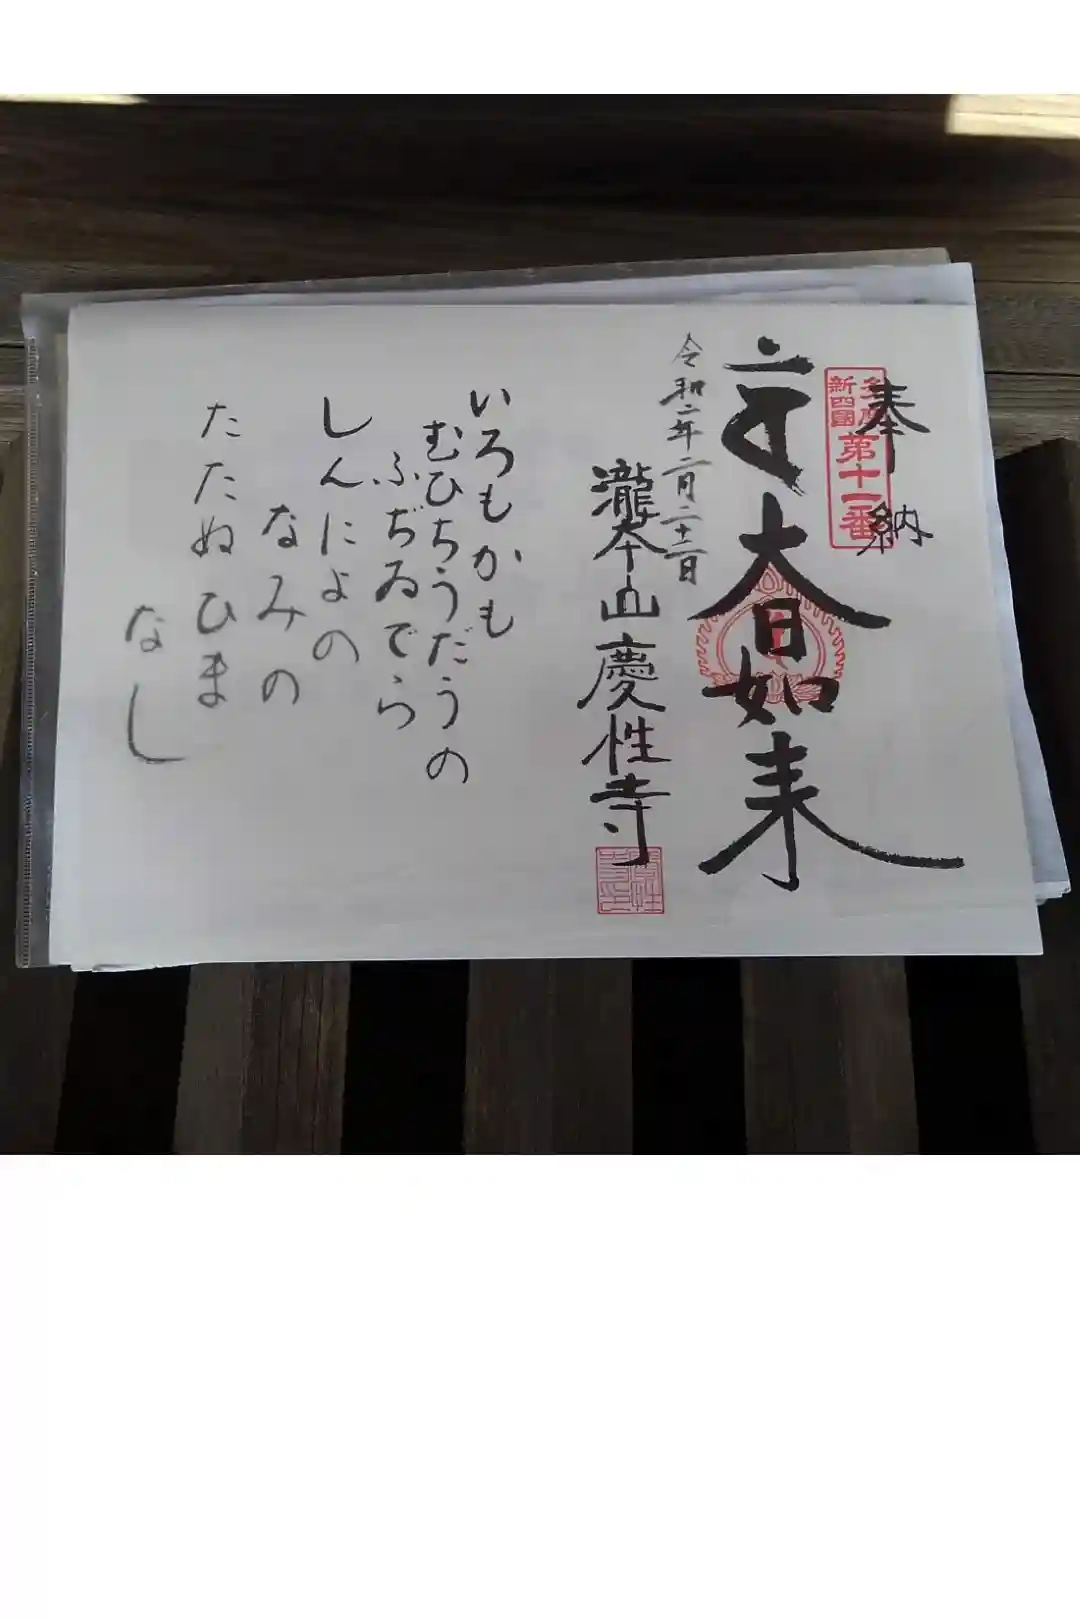 奉納
新四國
第十一番
大日如来
令和二年二月二十二日
瀧本山慶性寺
いろもかも
むひちうだうの
ふぢゐでら
しんによの
なみの
たたぬひま
なし